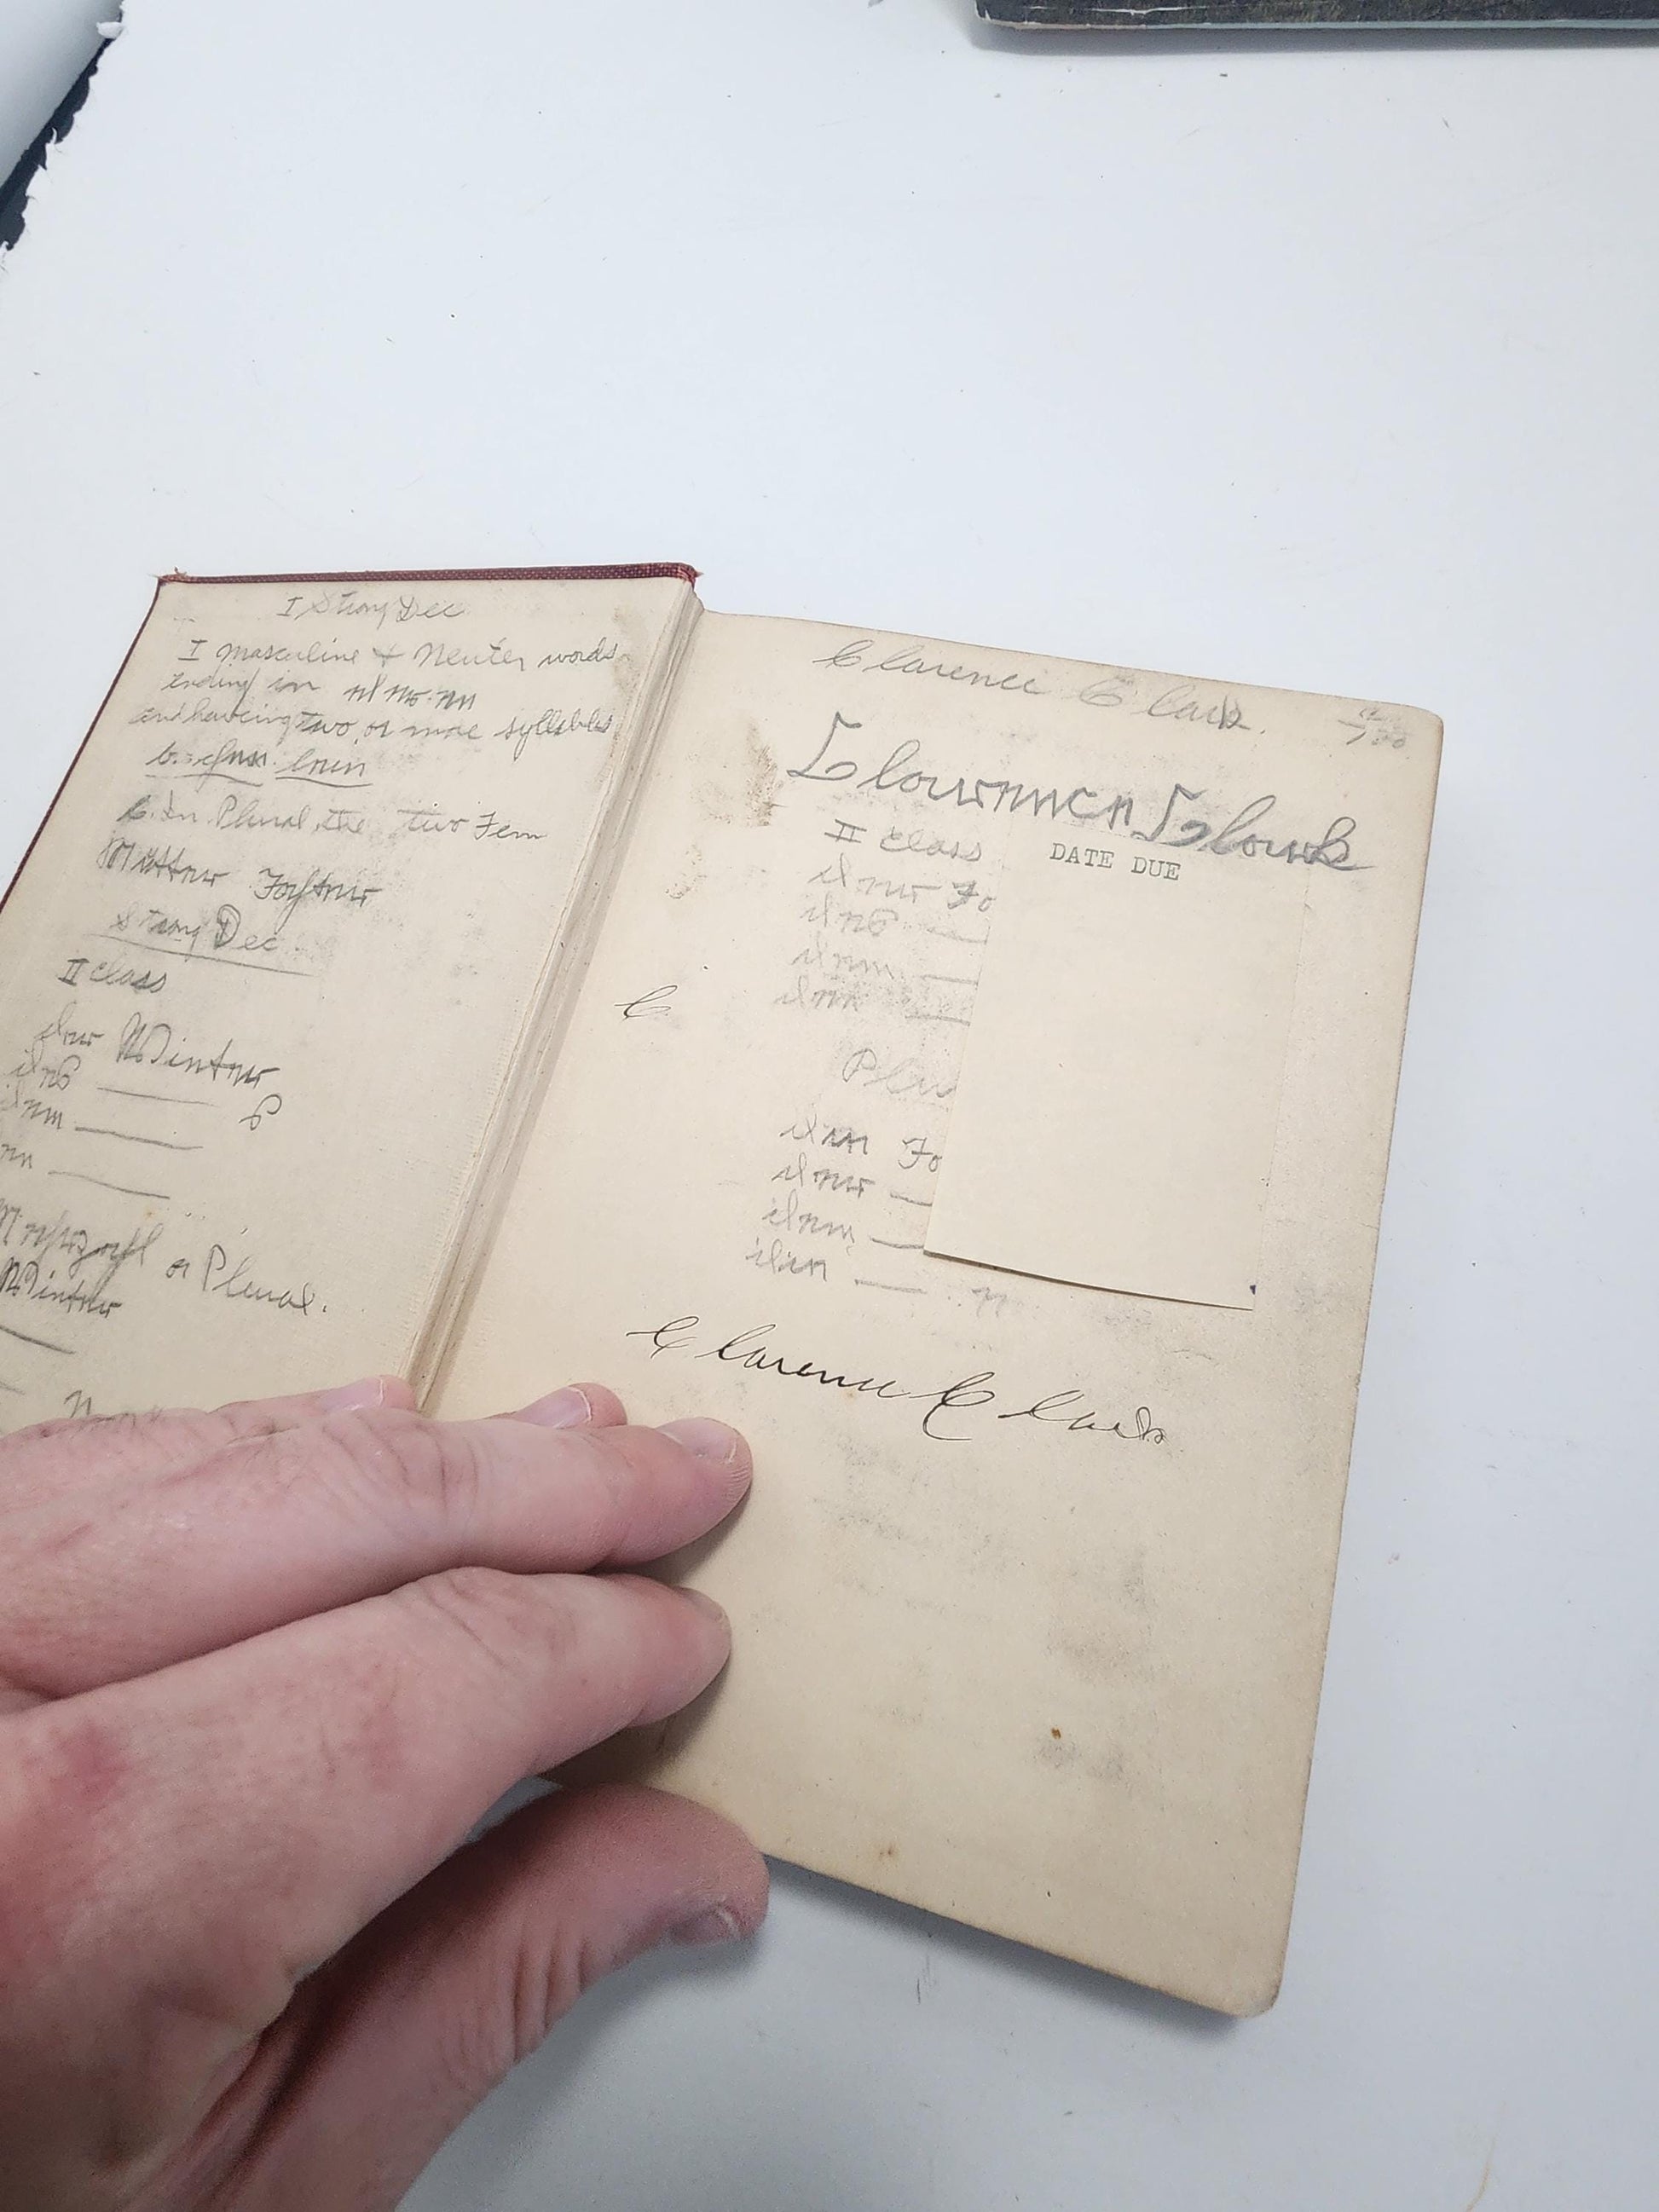 I Strong Dec
I masculine + Neuter words
ending in el er en
and having two or more syllables
b. chen lein
In Plural, the two Fem
Mütter Tochter
Strong Dec
II class
der Winter
des s
dem
Mehrzahl or Plural.
Winter
Clarence Clark.
Clarence Clark
II class
DATE DUE
der
des
dem
den
C
der
Clarence Clark